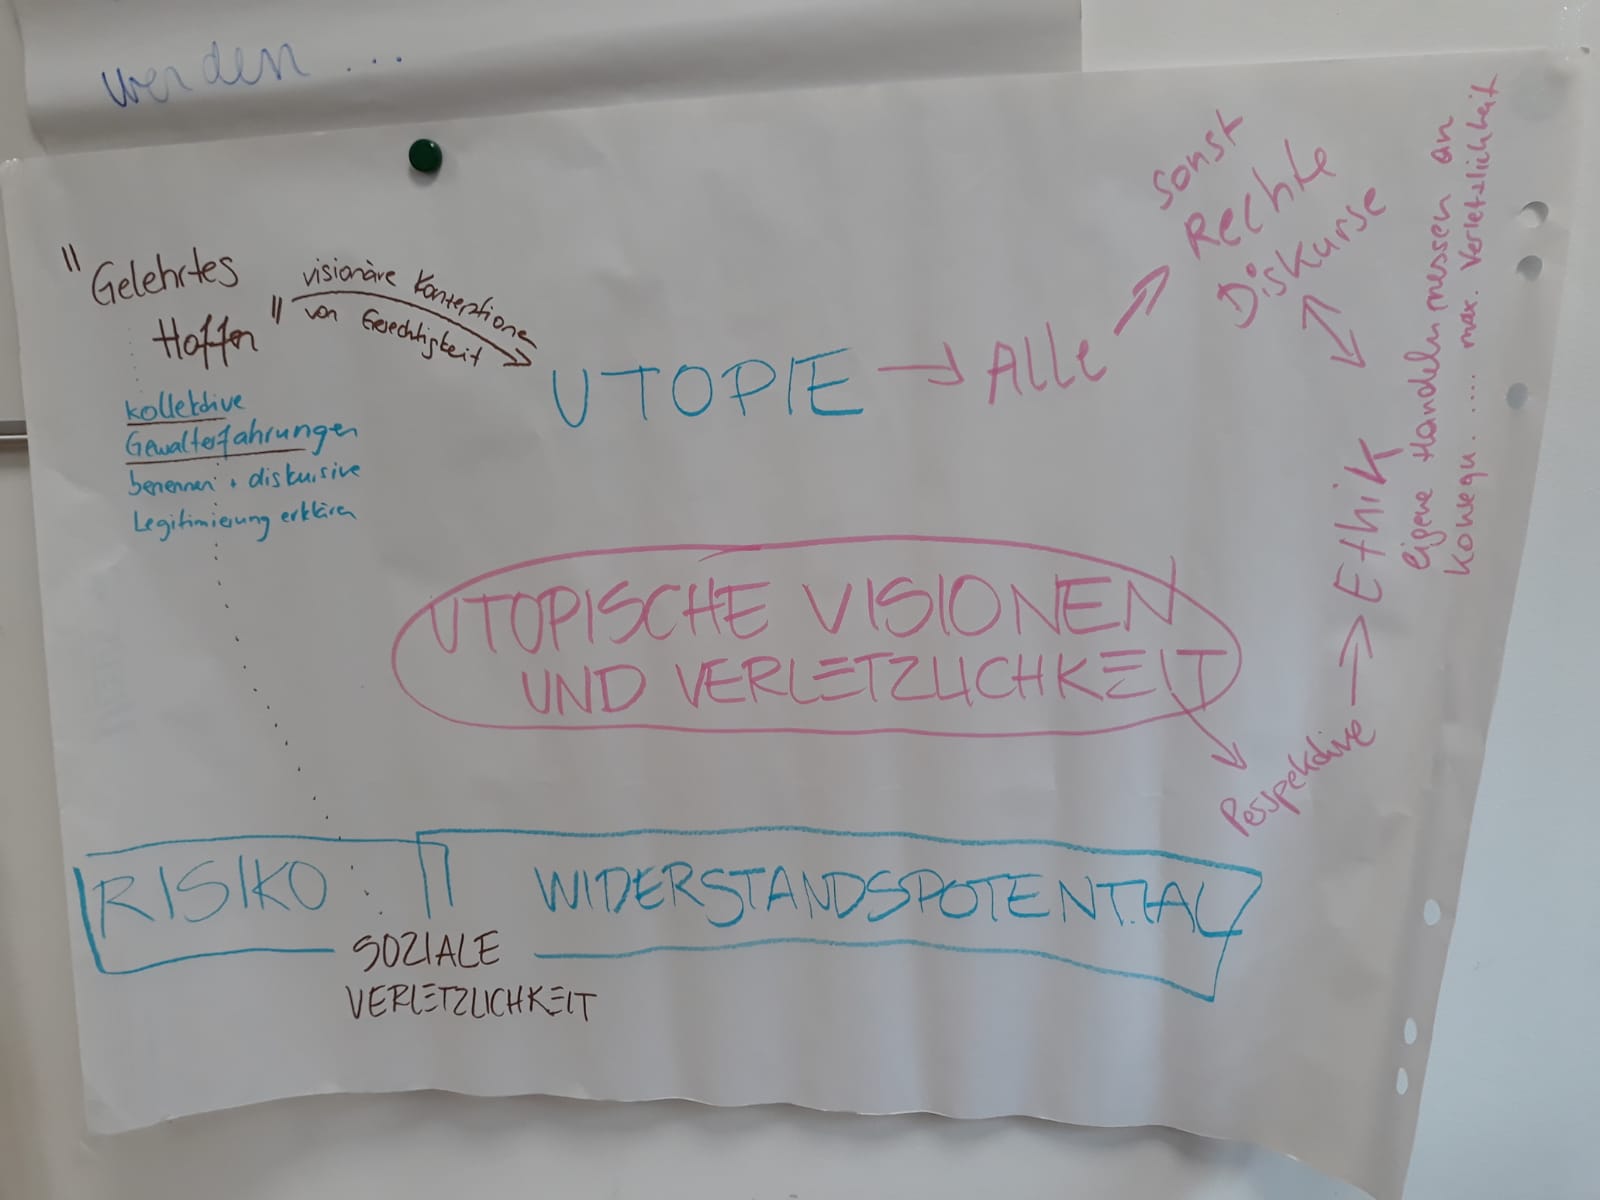 werden ...
"Gelehrtes
Hoffen"
visionäre Konzeptionen
von Gerechtigkeit
kollektive
Gewalterfahrungen
benennen + diskursive
Legitimierung erklären
UTOPIE
Alle
Sonst
Rechte
Diskurse
Ethik
eigene Handeln messen an
Konsequ. .... max. Verletzlichkeit
UTOPISCHE VISIONEN
UND VERLETZLICHKEIT
Perspektive
RISIKO
WIDERSTANDSPOTENTIAL
SOZIALE
VERLETZLICHKEIT